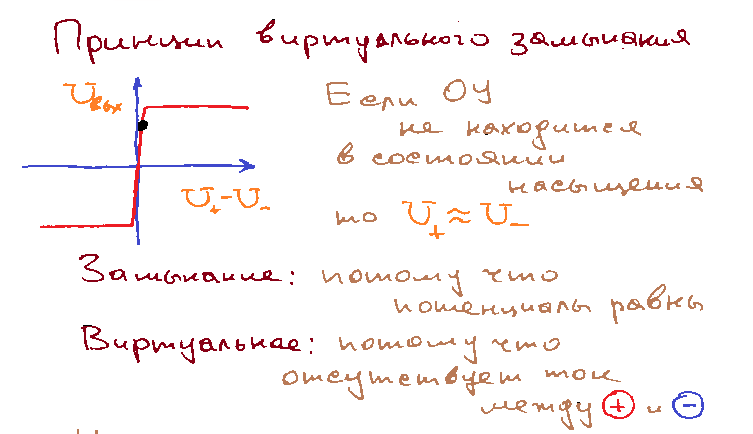 Принцип виртуального замыкания
Uвых
U₊-U₋
Если ОУ
не находится
в состоянии
насыщения
то U₊≈U₋
Замыкание: потому что
потенциалы равны
Виртуальное: потому что
отсутствует ток
между + и -